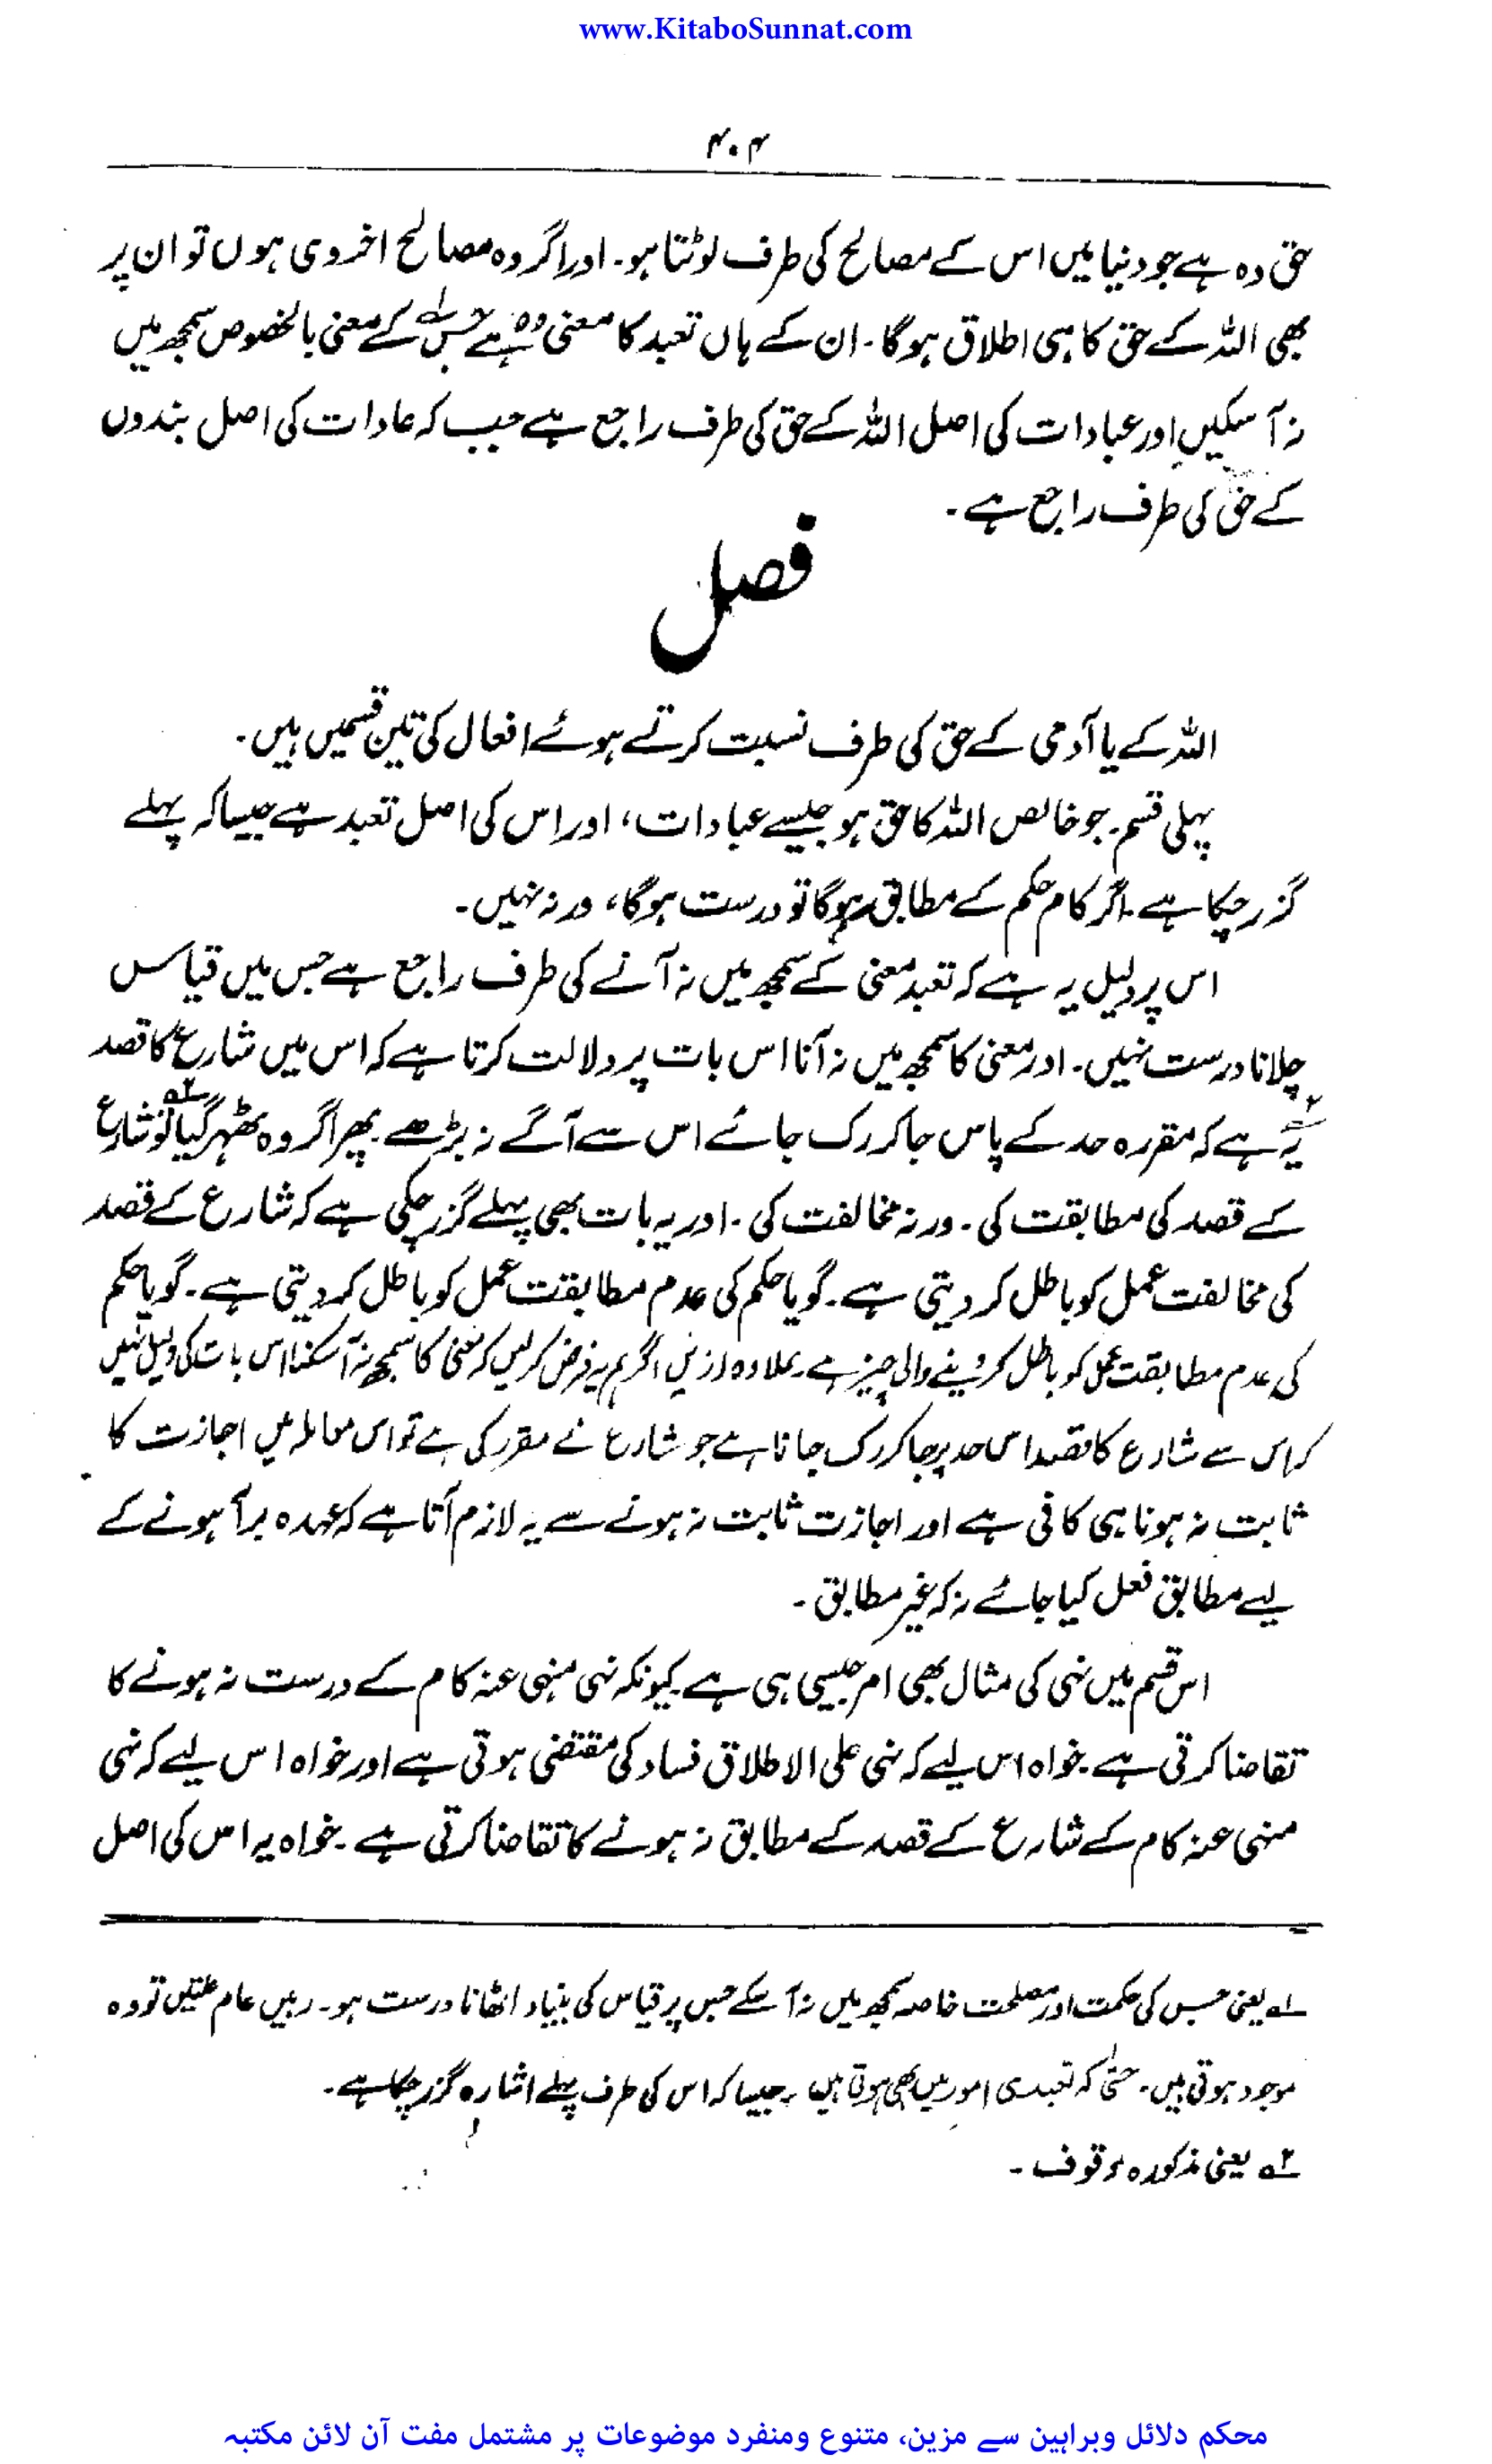 www.KitaboSunnat.com
۴۰۴
حق وہ ہے جو دنیا میں اس کے مصالح کی طرف لوٹتا ہو۔ اور اگر وہ مصالح اخروی ہوں تو ان پر
بھی اللہ کے حق کا ہی اطلاق ہوگا۔ ان کے ہاں تعبد کا معنی وہ ہے جس۱ کے معنی بالخصوص سمجھ میں
نہ آسکیں اور عبادات کی اصل اللہ کے حق کی طرف راجع ہے جب کہ عادات کی اصل بندوں
کے حق کی طرف راجع ہے۔
فصل
اللہ کے یا آدمی کے حق کی طرف نسبت کرتے ہوئے افعال کی تین قسمیں ہیں۔
پہلی قسم۔ جو خالص اللہ کا حق ہو جیسے عبادات، اور اس کی اصل تعبد ہے جیسا کہ پہلے
گزر چکا ہے۔ اگر کام حکم کے مطابق ہوگا تو درست ہوگا، ورنہ نہیں۔
اس پر دلیل یہ ہے کہ تعبد معنی کے سمجھ میں نہ آنے کی طرف راجع ہے جس میں قیاس
چلانا درست نہیں۔ اور معنی کا سمجھ میں نہ آنا اس بات پر دلالت کرتا ہے کہ اس میں شارع کا قصد
یہ ہے کہ مقررہ حد کے پاس جا کر رک جائے اس سے آگے نہ بڑھے۔ پھر اگر وہ ٹھہر گیا۲ تو شارع
کے قصد کی مطابقت کی۔ ورنہ مخالفت کی۔ اور یہ بات بھی پہلے گزر چکی ہے کہ شارع کے قصد
کی مخالفت عمل کو باطل کر دیتی ہے۔ گویا حکم کی عدم مطابقت عمل کو باطل کر دیتی ہے۔ گویا حکم
کی عدم مطابقت عمل کو باطل کر دینے والی چیز ہے۔ علاوہ ازیں اگر ہم یہ فرض کر لیں کہ معنی کا سمجھ نہ آسکنا اس بات کی دلیل نہیں
کہ اس سے شارع کا قصد اس حد پر جا کر رک جانا ہے جو شارع نے مقرر کی ہے تو اس معاملہ میں اجازت کا
ثابت نہ ہونا ہی کافی ہے اور اجازت ثابت نہ ہونے سے یہ لازم آتا ہے کہ عہدہ برآ ہونے کے
لیے مطابق فعل کیا جائے نہ کہ غیر مطابق۔
اس قسم میں نہی کی مثال بھی امر جیسی ہی ہے۔ کیونکہ نہی منہی عنہ کام کے درست نہ ہونے کا
تقاضا کرتی ہے۔ خواہ اس لیے کہ نہی علی الاطلاق فساد کی مقتضی ہوتی ہے اور خواہ اس لیے کہ نہی
منہی عنہ کام کے شارع کے قصد کے مطابق نہ ہونے کا تقاضا کرتی ہے۔ خواہ یہ اس کی اصل
۱ یعنی جس کی حکمت اور مصلحت خاصہ سمجھ میں نہ آ سکے جس پر قیاس کی بنیاد اٹھانا درست ہو۔ رہیں عام علتیں تو وہ
موجود ہوتی ہیں۔ حتیٰ کہ تعبدی امور میں بھی ہوتا ہیں۔ جیسا کہ اس کی طرف پہلے اشارہ گزر چکا ہے۔
۲ یعنی مذکورہ وقوف۔
محکم دلائل وبراہین سے مزین، متنوع ومنفرد موضوعات پر مشتمل مفت آن لائن مکتبہ